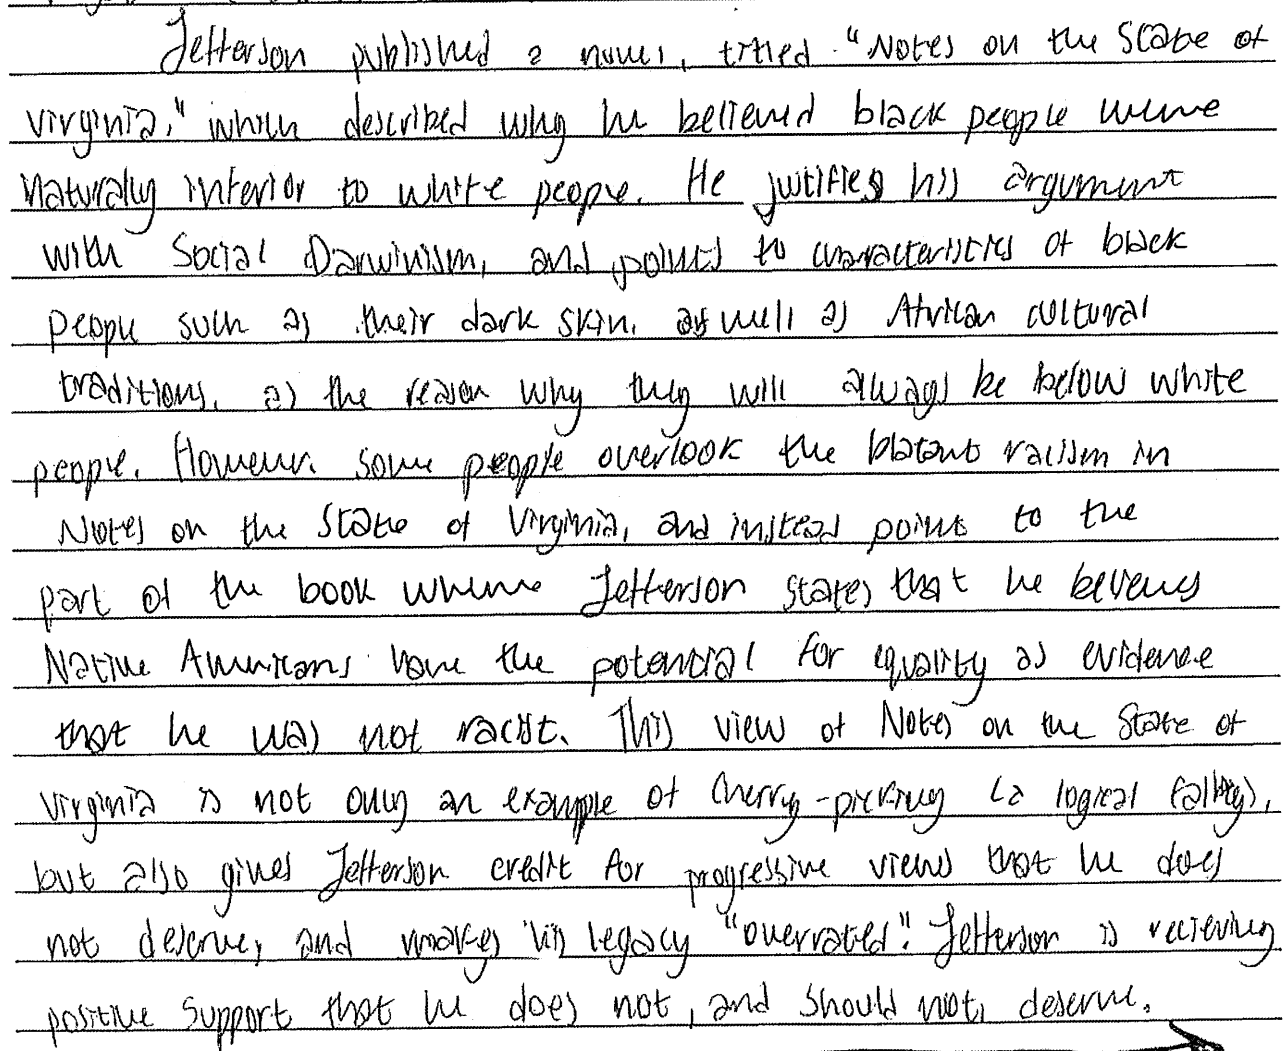 Jefferson published a novel, titled "Notes on the State of
Virginia," which described why he believed black people were
naturally inferior to white people. He justifies his argument
with Social Darwinism, and points to characteristics of black
people such as their dark skin, as well as African cultural
traditions, as the reason why they will always be below white
people. However, some people overlook the blatant racism in
Notes on the State of Virginia, and instead point to the
part of the book where Jefferson states that he believes
Native Americans have the potential for equality as evidence
that he was not racist. This view of Notes on the State of
Virginia is not only an example of cherry-picking (a logical fallacy),
but also gives Jefferson credit for progressive views that he does
not deserve, and makes his legacy "overrated". Jefferson is recieving
positive support that he does not, and should not, deserve.